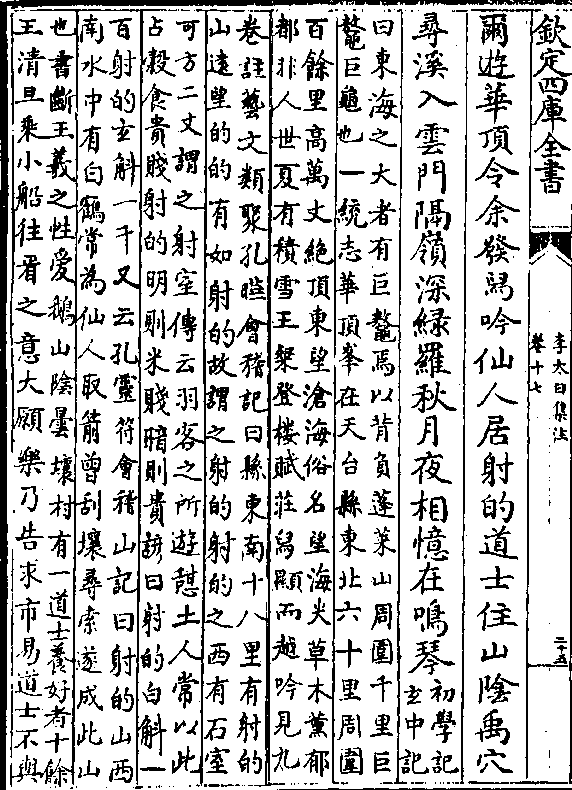 欽定四庫全書
李太白集注
卷十七
二十五
爾遊華頂令余發舄吟仙人居射的道士住山陰禹穴
尋溪入雲門隔嶺深綠羅秋月夜相憶在鳴琴
初學記
玄中記
曰東海之大者有巨鼇焉以背負蓬萊山周圍千里巨
鼇巨龜也一統志華頂峯在天台縣東北六十里周圍
百餘里高萬丈絶頂東望滄海俗名望海尖草木薰郁
都非人世夏有積雪王粲登樓賦莊舄顯而越吟見九
卷註藝文類聚孔曄會稽記曰縣東南十八里有射的
山遠望的的有如射的故謂之射的射的之西有石室
可方二丈謂之射室傳云羽客之所遊憩土人常以此
占穀食貴賤射的明則米賤暗則貴諺曰射的白斛一
百射的玄斛一千又云孔靈符會稽山記曰射的山西
南水中有白鶴常為仙人取箭曾刮壤尋索遂成此山
也書斷王羲之性愛鵝山陰曇壤村有一道士養好者十餘
王清旦乘小船往看之意大願樂乃告求市易道士不與